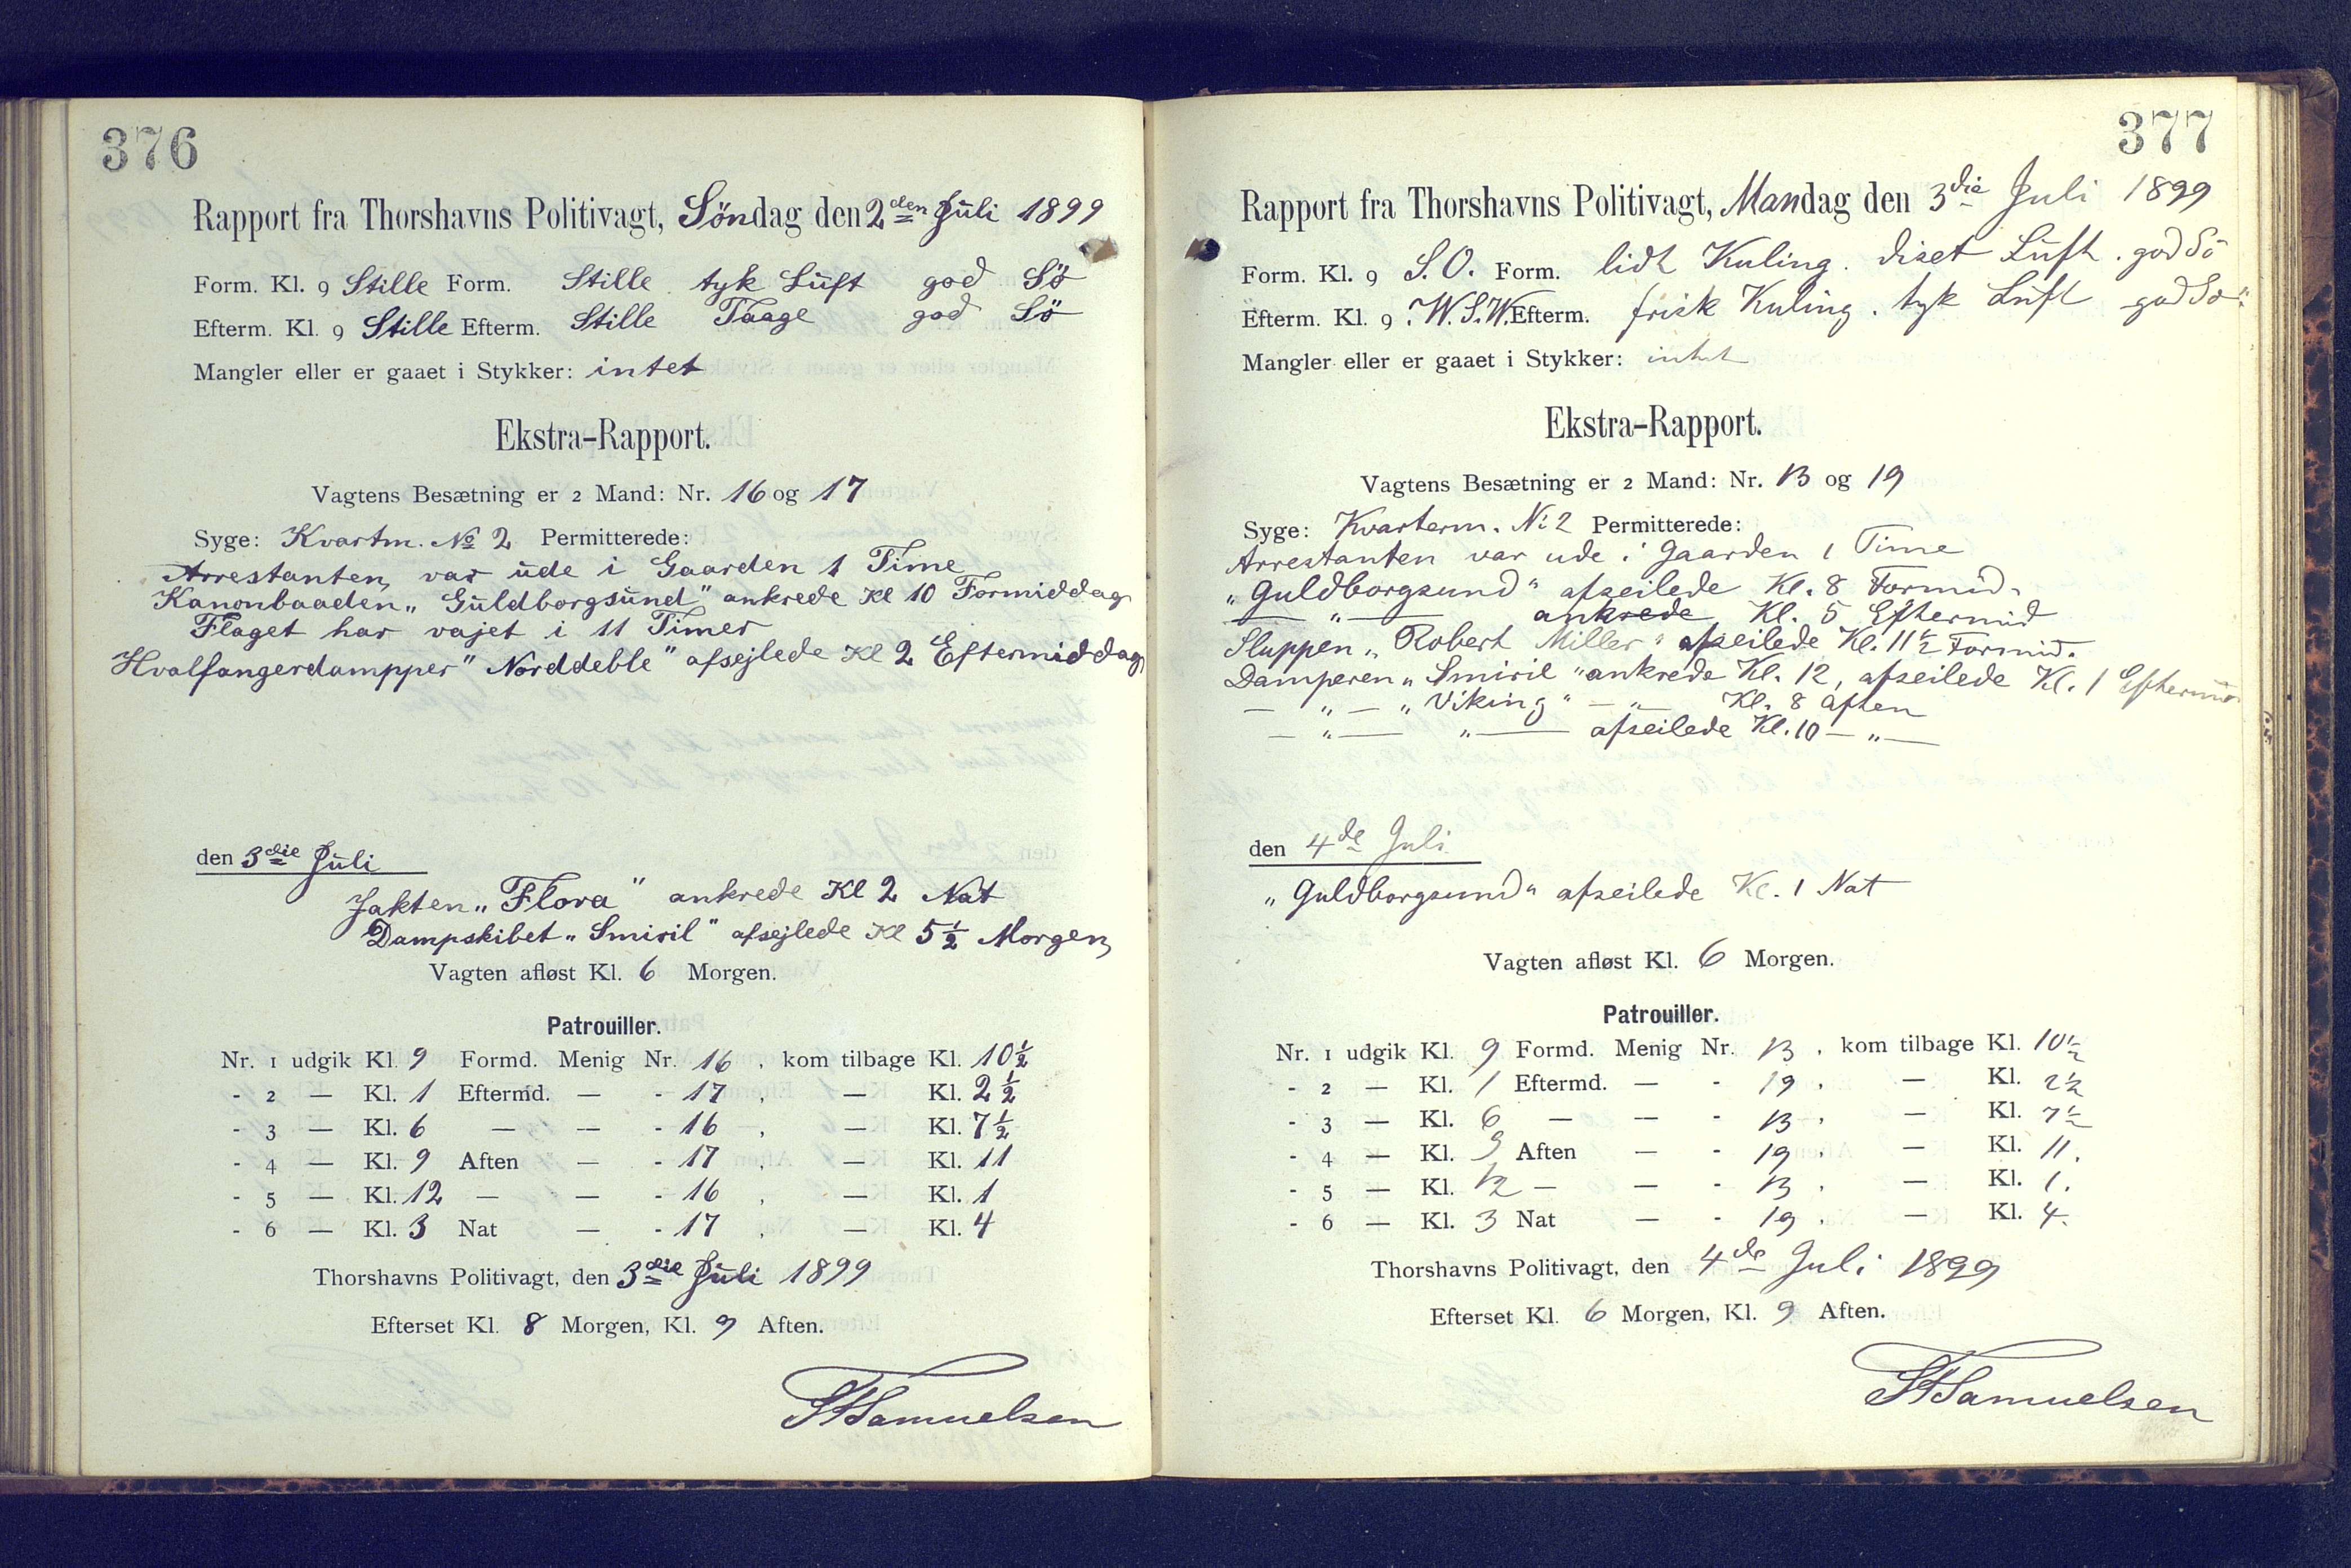 376
Rapport fra Thorshavns Politivagt, Söndag den 2den Juli 1899
Form. Kl. 9 Stille Form. Stille tyk Luft god Sö
Efterm. Kl. 9 Stille Efterm. Stille Taage god Sö
Mangler eller er gaaet i Stykker: intet
Ekstra-Rapport.
Vagtens Besætning er 2 Mand: Nr. 16 og 17
Syge: Kvartm. No 2 Permitterede:
Arrestanten var ude i Gaarden 1 Time
Kanonbaaden „Guldborgsund" ankrede Kl 10 Formiddag
Flaget har vajet i 11 Timer
Hvalfangerdampper "Norddeble" afsejlede Kl 2 Eftermiddag
den 3die Juli
Jakten „Flora" ankrede Kl 2 Nat
Dampskibet „Smiril" afsejlede Kl 5½ Morgen
Vagten afløst Kl. 6 Morgen.
Patrouiller.
Nr. 1 udgik Kl. 9 Formd. Menig Nr. 16, kom tilbage Kl. 10½
- 2 — Kl. 1 Eftermd. — - 17, — Kl. 2½
- 3 — Kl. 6 — — - 16, — Kl. 7½
- 4 — Kl. 9 Aften — - 17, — Kl. 11
- 5 — Kl. 12 — — - 16, — Kl. 1
- 6 — Kl. 3 Nat — - 17, — Kl. 4
Thorshavns Politivagt, den 3die Juli 1899
Efterset Kl. 8 Morgen, Kl. 9 Aften.
Samuelsen
377
Rapport fra Thorshavns Politivagt, Mandag den 3die Juli 1899
Form. Kl. 9 S.O. Form. lidt Kuling. diset Luft. god Sö
Efterm. Kl. 9. W.S.W. Efterm. frisk Kuling. tyk Luft god Sö
Mangler eller er gaaet i Stykker: intet
Ekstra-Rapport.
Vagtens Besætning er 2 Mand: Nr. 13 og 19
Syge: Kvarterm. No 2 Permitterede:
Arrestanten var ude i Gaarden 1 Time
„Guldborgsund" afseilede Kl. 8 Formid.
— „ — ankrede Kl. 5 Eftermid
Sluppen „Robert Miller" afseilede Kl. 11½ Formid.
Damperen „Smiril" ankrede Kl. 12, afseilede Kl. 1 Eftermid
— „ — „Viking" — „ — Kl. 8 Aften
— „ — „ — afseilede Kl. 10 — „ —
den 4de Juli
„Guldborgsund" afseilede Kl. 1 Nat
Vagten afløst Kl. 6 Morgen.
Patrouiller.
Nr. 1 udgik Kl. 9 Formd. Menig Nr. 13, kom tilbage Kl. 10½
- 2 — Kl. 1 Eftermd. — - 19, — Kl. 2½
- 3 — Kl. 6 — — - 13, — Kl. 7½
- 4 — Kl. 9 Aften — - 19, — Kl. 11.
- 5 — Kl. 12 — — - 13, — Kl. 1.
- 6 — Kl. 3 Nat — - 19, — Kl. 4.
Thorshavns Politivagt, den 4de Juli 1899
Efterset Kl. 6 Morgen, Kl. 9 Aften.
Samuelsen